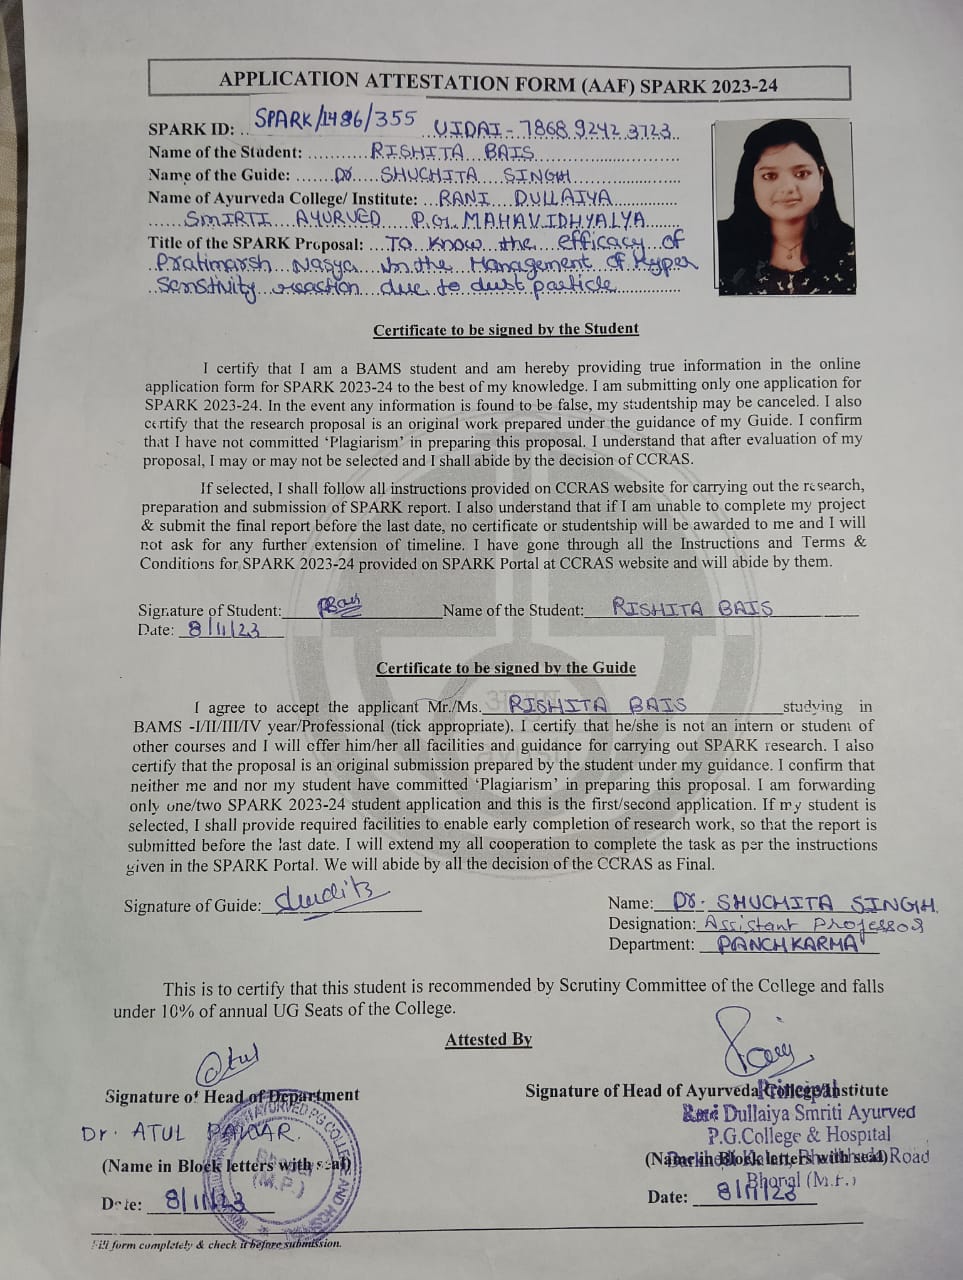 APPLICATION ATTESTATION FORM (AAF) SPARK 2023-24
SPARK ID: .. SPARK/1486/355 ..UIDAI - 7868 9242 3723..
Name of the Student: ..........RISHITA BAIS..............................
Name of the Guide: .......Dr..... SHUCHITA SINGH......................
Name of Ayurveda College/ Institute: ...RANI DULLAIYA........
......SMIRTI AYURVED P.G. MAHAVIDHYALYA.......
Title of the SPARK Proposal: ...To Know the efficacy of
Pratimarsh Nasya in the Management of Hyper
Senstivity reaction due to dust particle..............
Certificate to be signed by the Student
I certify that I am a BAMS student and am hereby providing true information in the online
application form for SPARK 2023-24 to the best of my knowledge. I am submitting only one application for
SPARK 2023-24. In the event any information is found to be false, my studentship may be canceled. I also
certify that the research proposal is an original work prepared under the guidance of my Guide. I confirm
that I have not committed ‘Plagiarism’ in preparing this proposal. I understand that after evaluation of my
proposal, I may or may not be selected and I shall abide by the decision of CCRAS.
If selected, I shall follow all instructions provided on CCRAS website for carrying out the research,
preparation and submission of SPARK report. I also understand that if I am unable to complete my project
& submit the final report before the last date, no certificate or studentship will be awarded to me and I will
not ask for any further extension of timeline. I have gone through all the Instructions and Terms &
Conditions for SPARK 2023-24 provided on SPARK Portal at CCRAS website and will abide by them.
Signature of Student: Name of the Student: RISHITA BAIS
Date: 8/11/23
Certificate to be signed by the Guide
I agree to accept the applicant Mr./Ms. RISHITA BAIS studying in
BAMS -I/II/III/IV year/Professional (tick appropriate). I certify that he/she is not an intern or student of
other courses and I will offer him/her all facilities and guidance for carrying out SPARK research. I also
certify that the proposal is an original submission prepared by the student under my guidance. I confirm that
neither me and nor my student have committed ‘Plagiarism’ in preparing this proposal. I am forwarding
only one/two SPARK 2023-24 student application and this is the first/second application. If my student is
selected, I shall provide required facilities to enable early completion of research work, so that the report is
submitted before the last date. I will extend my all cooperation to complete the task as per the instructions
given in the SPARK Portal. We will abide by all the decision of the CCRAS as Final.
Signature of Guide: Name: Dr. SHUCHITA SINGH.
Designation: Assistant Professor
Department: PANCHKARMA
This is to certify that this student is recommended by Scrutiny Committee of the College and falls
under 10% of annual UG Seats of the College.
Attested By
Atul
Signature of Head of Department Signature of Head of Ayurveda College/Institute
Principal
Rani Dullaiya Smriti Ayurved
Dr. ATUL PAWAR. P.G.College & Hospital
(Name in Block letters with seal) (Name in Block letters with seal) Road
Bhopal (M.P.)
Date: 8/11/23 Date: 8/11/23
Fill form completely & check it before submission.